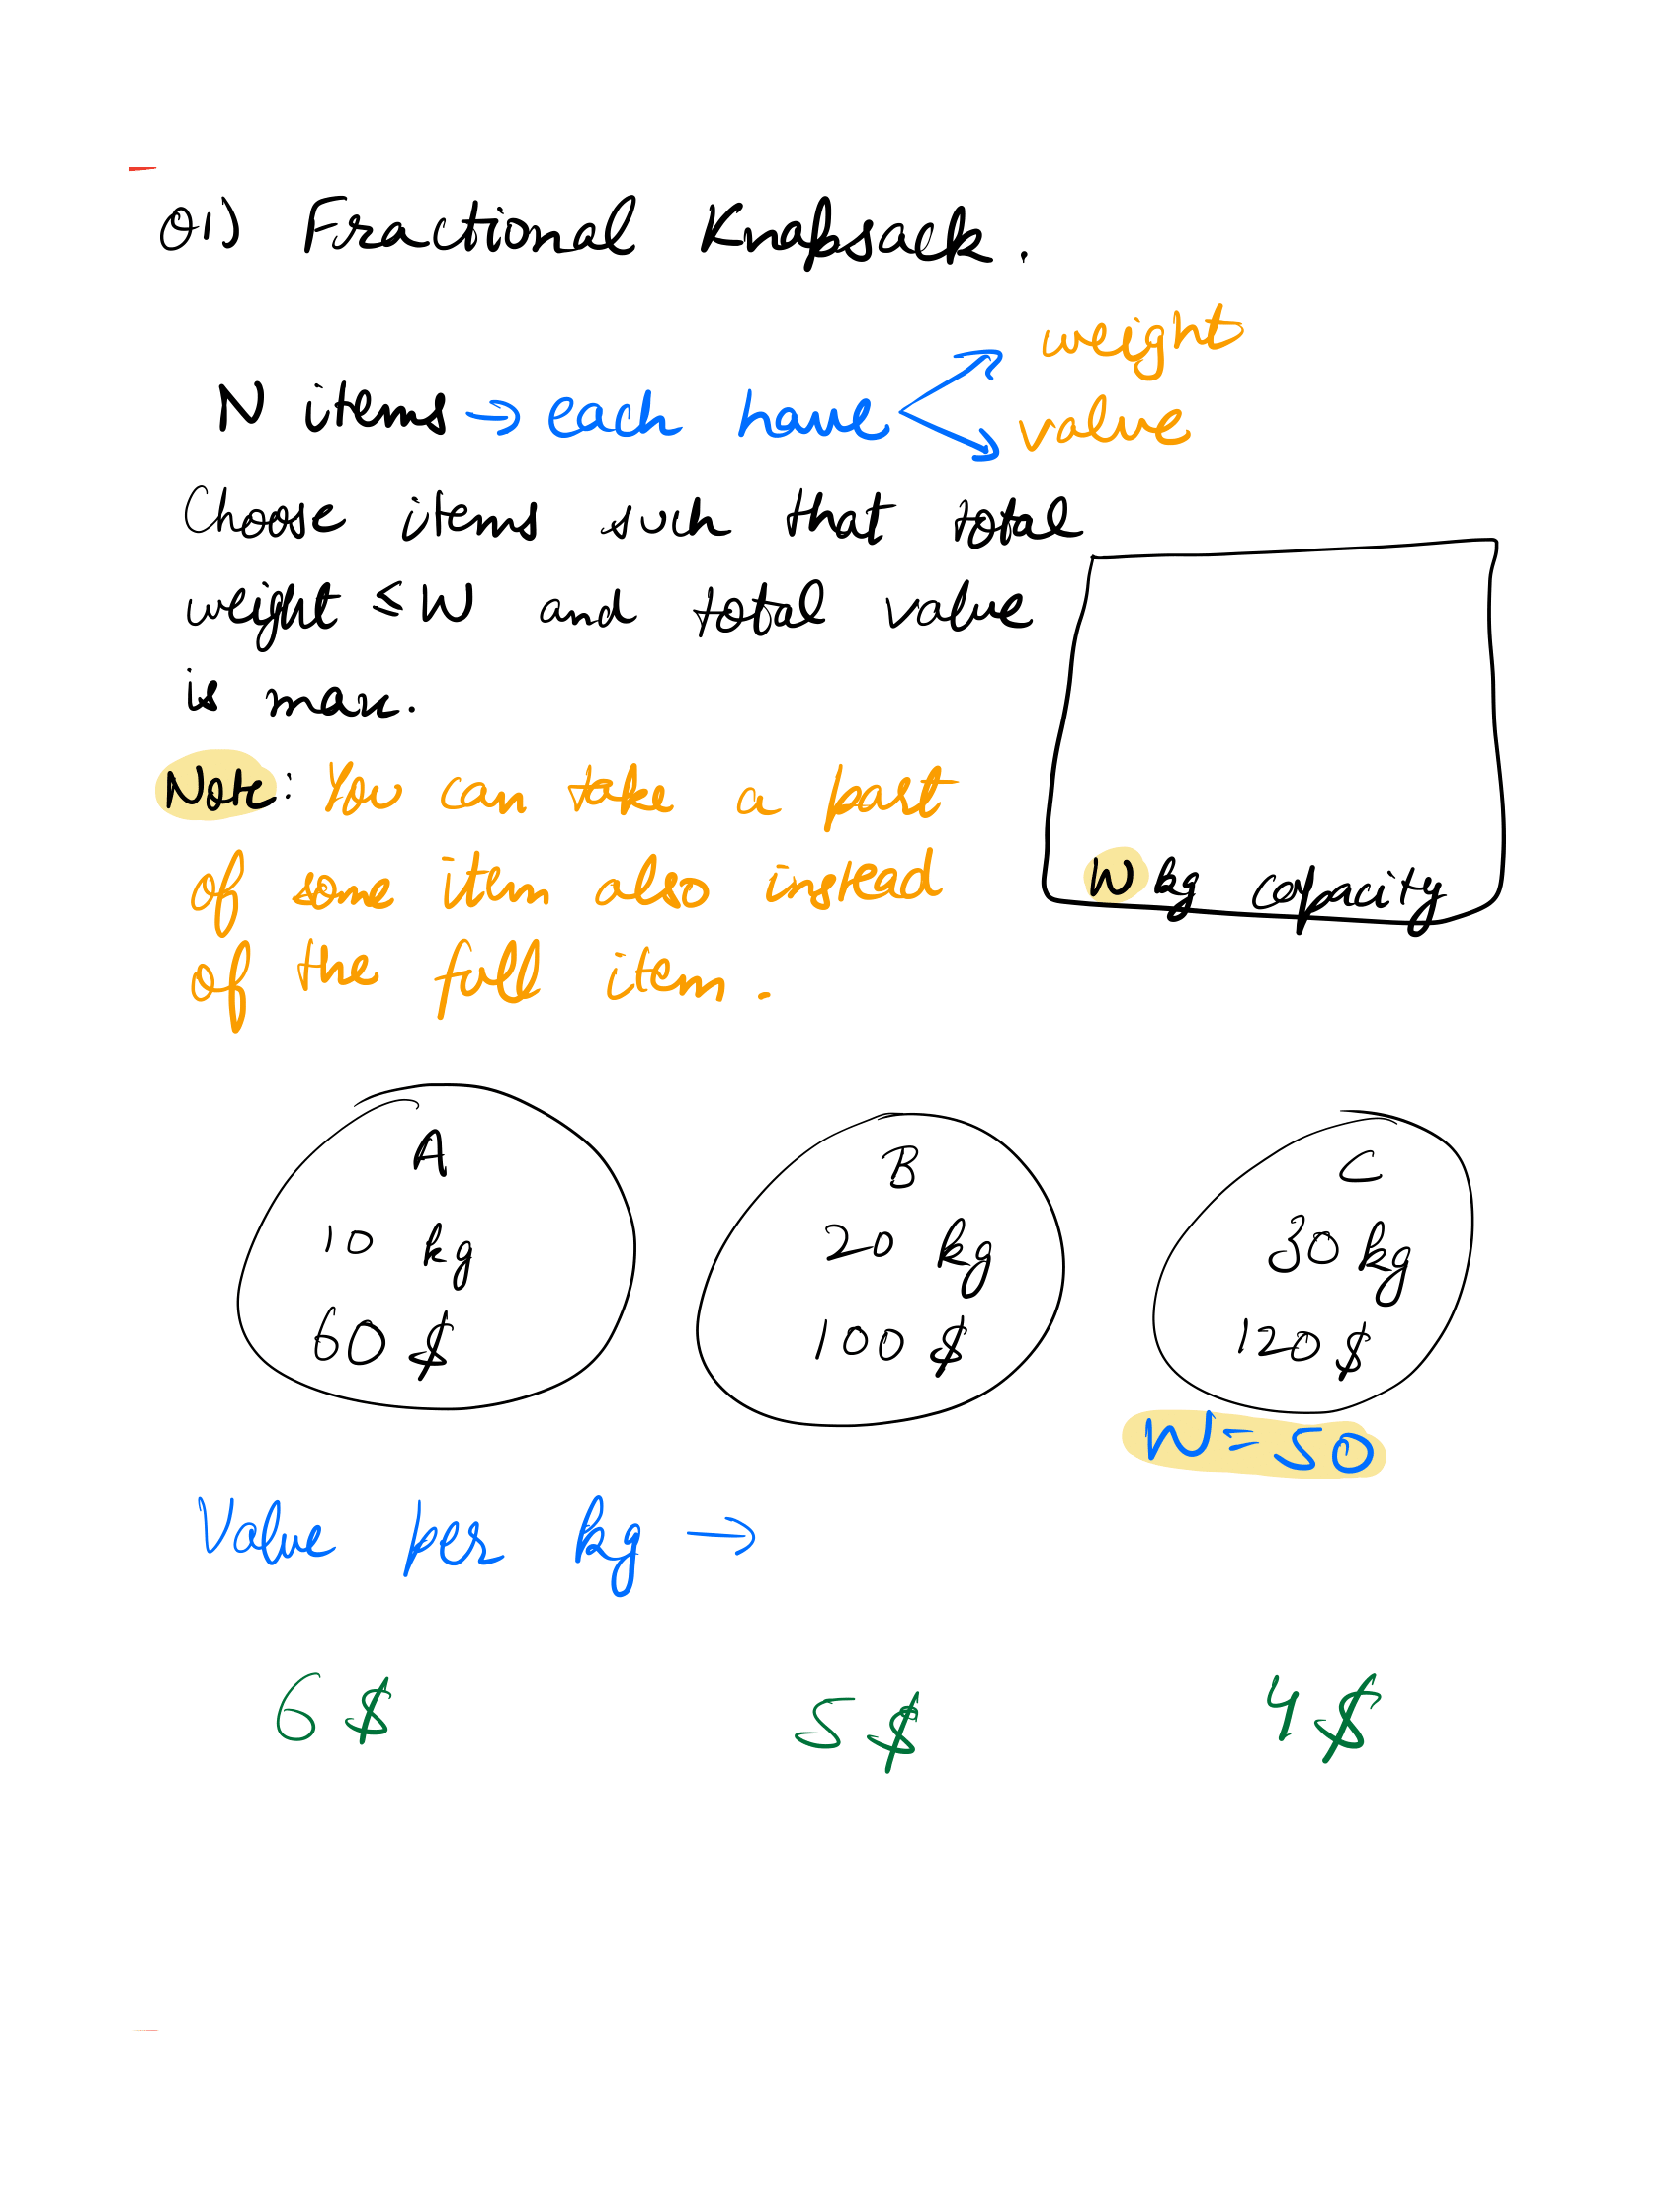 Q1) Fractional Knapsack.
N items → each have weight
value
Choose items such that total
weight ≤ W and total value
is max.
Note: You can take a part
of some item also instead
of the full item.
W kg capacity
A
10 kg
60 $
B
20 kg
100 $
C
30 kg
120 $
W = 50
Value per kg →
6 $ 5 $ 4 $